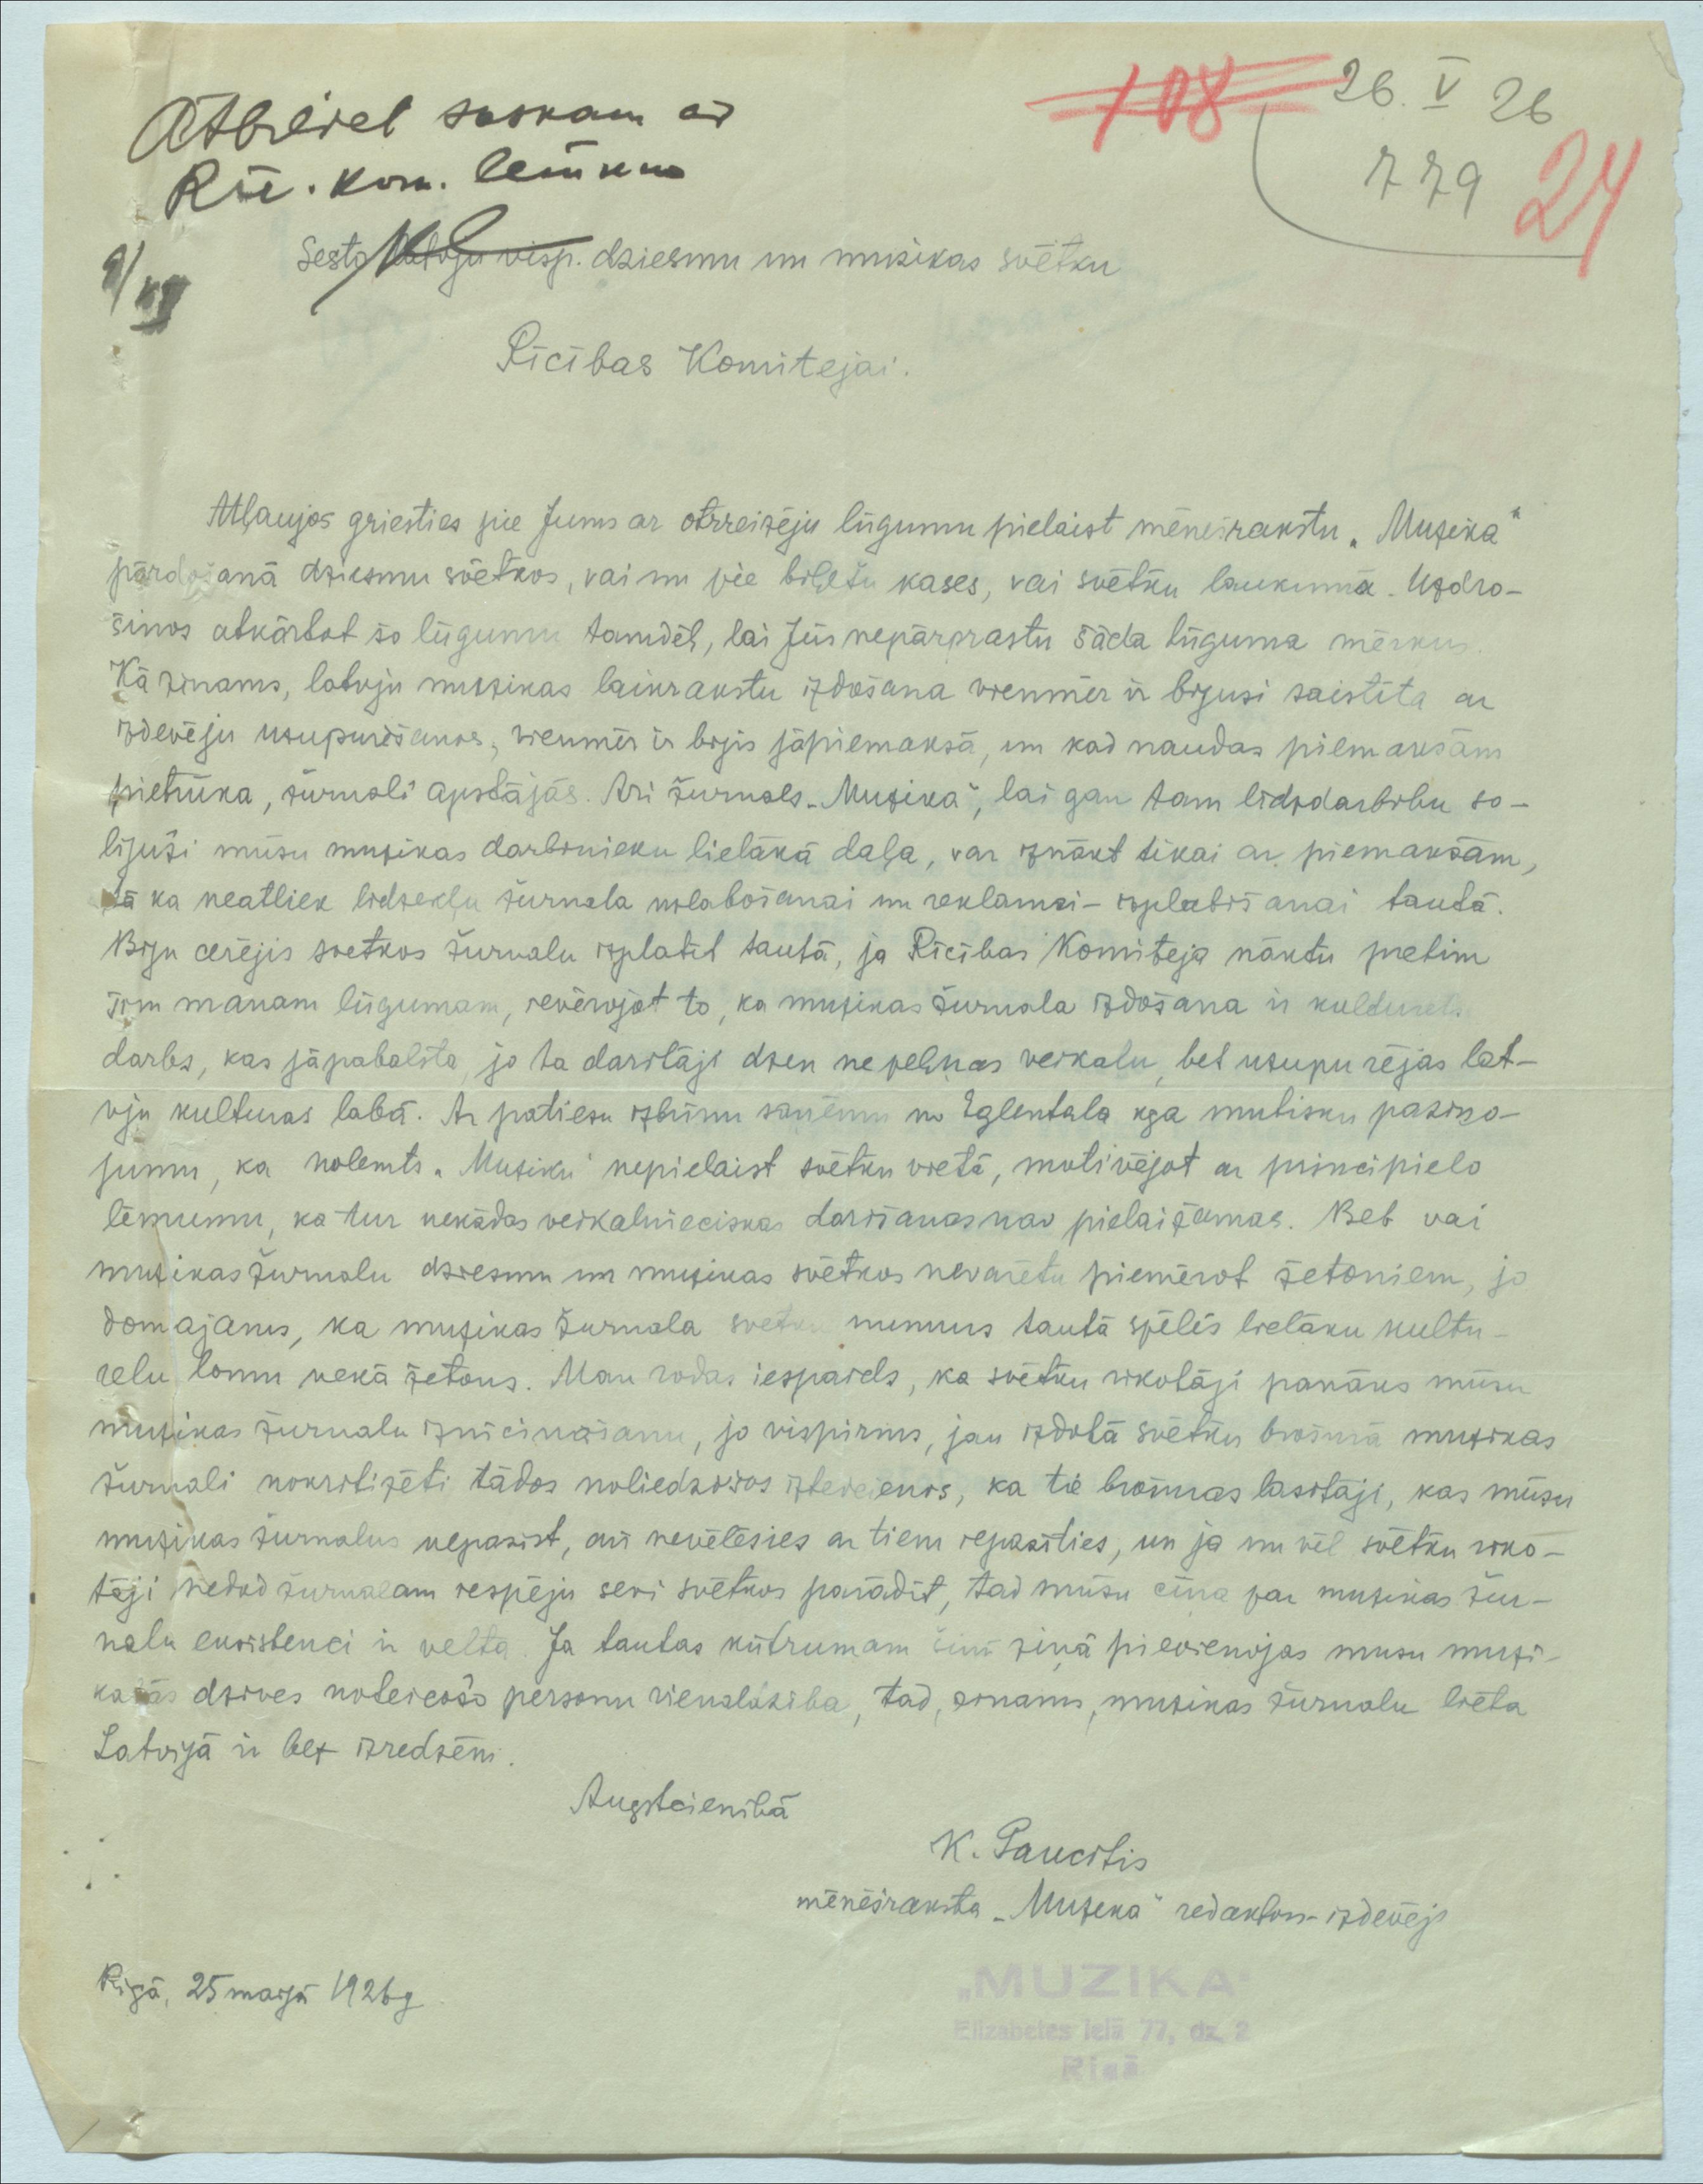 Atbildet saskaņ ar
Rīc. kom. lēmumu
108
26. V 26
779
24
9/VI
Sesto latvju visp. dziesmu un muzikas svētku
Rīcības Komitejai.
Atļaujos griesties pie Jums ar otrreizēju lūgumu pielaist mēnešrakstu „Muzika"
pārdošanā dziesmu svētkos, vai nu pie biļešu kases, vai svētku laukumā. Uzdro-
šinos atkārtot šo lūgumu tamdēļ, lai Jūs nepārprastu šāda lūguma mērķus.
Kā zinams, latvju muzikas laikrakstu izdošana vienmēr ir bijusi saistīta ar
izdevēju uzupurēšanos, vienmēr ir bijis jāpiemaksā, un kad naudas piemaksām
pietrūka, žurnali apstājās. Ari žurnals „Muzika", lai gan tam līdzdarbību so-
lijuši mūsu muzikas darbinieku lielākā daļa, var iznākt tikai ar piemaksām,
tā ka neatliek līdzekļu žurnala uzlabošanai un reklamai - izplatīšanai tautā.
Biju cerējis svētkos žurnalu izplatīt tautā, ja Rīcības Komiteja nāktu pretim
šim manam lūgumam, ievērojot to, ka muzikas žurnala izdošana ir kulturels
darbs, kas jāpabalsta, jo ta darītāji dzen ne peļņas veikalu, bet uzupurējas lat-
vju kulturas labā. Ar patiesu izbrīnu saņēmu no Eglentala kga mutisku paziņo-
jumu, ka nolemts „Muziku" nepielaist svētku vietā, motivējot ar principielo
lēmumu, ka tur nekādas veikalnieciskas darīšanas nav pielaižamas. Bet vai
muzikas žurnalu dziesmu un muzikas svētkos nevarētu piemērot žetoniem, jo
domajams, ka muzikas žurnala svētku numurs tautā spēlēs lielāku kultu-
relu lomu nekā žetons. Man rodas iespaids, ka svētku rīkotāji panāks mūsu
muzikas žurnalu iznīcināšanu, jo vispirms, jau izdotā svētku brošurā muzikas
žurnali nokritizēti tādos noliedzošos izteicienos, ka tie brošuras lasītāji, kas mūsu
muzikas žurnalus nepazīst, arī nevēlēsies ar tiem iepazīties, un ja nu vēl svētku rīko-
tāji nedod žurnalam iespēju sevi svētkos parādīt, tad mūsu cīņa par muzikas žur-
nalu eksistenci ir velta. Ja tautas kūtrumam šinī ziņā pievienojas mūsu muzi-
kalās dzīves noteicošo personu vienaldzība, tad, zinams, muzikas žurnalu lieta
Latvijā ir bez izredzēm.
Augstcienībā
K. Paucītis
mēnešraksta „Muzika" redaktors-izdevējs
Rīgā, 25 maijā 1926 g.
„MUZIKA"
Elizabetes ielā 77, dz. 2
Rīgā